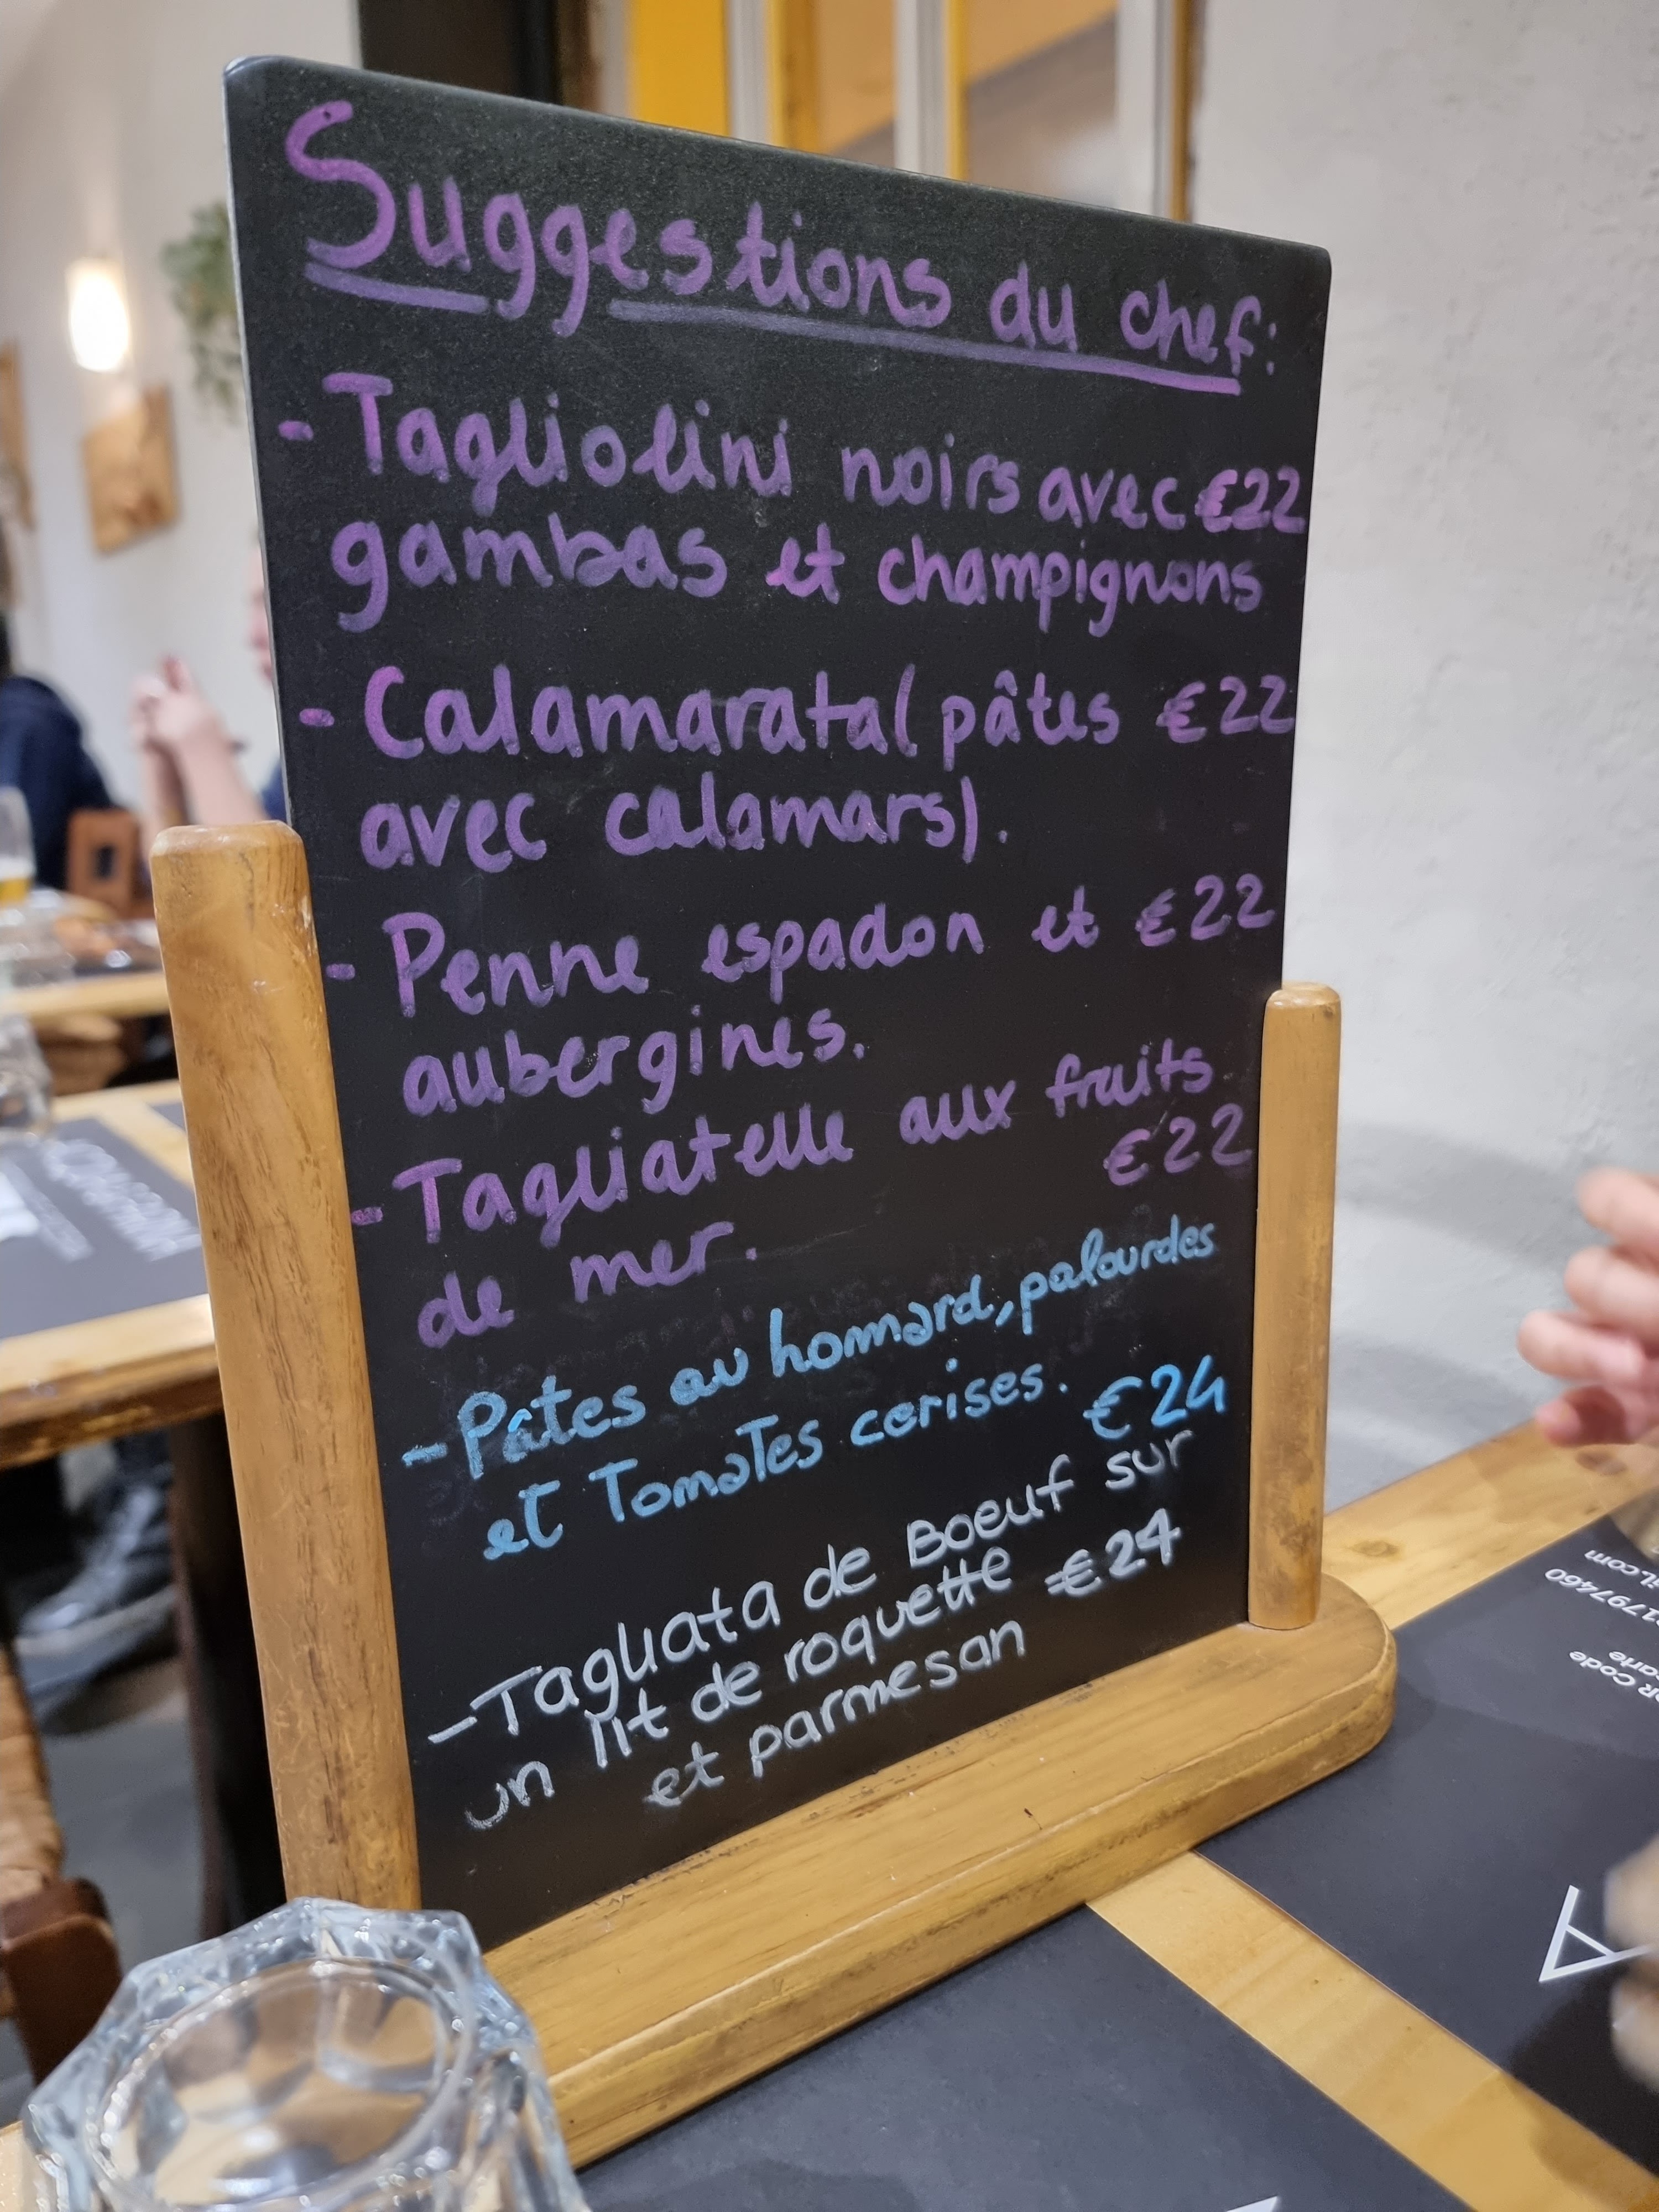 Suggestions du chef:
- Tagliolini noirs avec €22
gambas et champignons
- Calamarata (pâtes €22
avec calamars).
- Penne espadon et €22
aubergines.
- Tagliatelle aux fruits
€22
de mer.
- Pâtes au hommard, palourdes
et Tomates cerises. €24
- Tagliata de Boeuf sur
un lit de roquette €24
et parmesan
1797460
il.com
QR Code
A